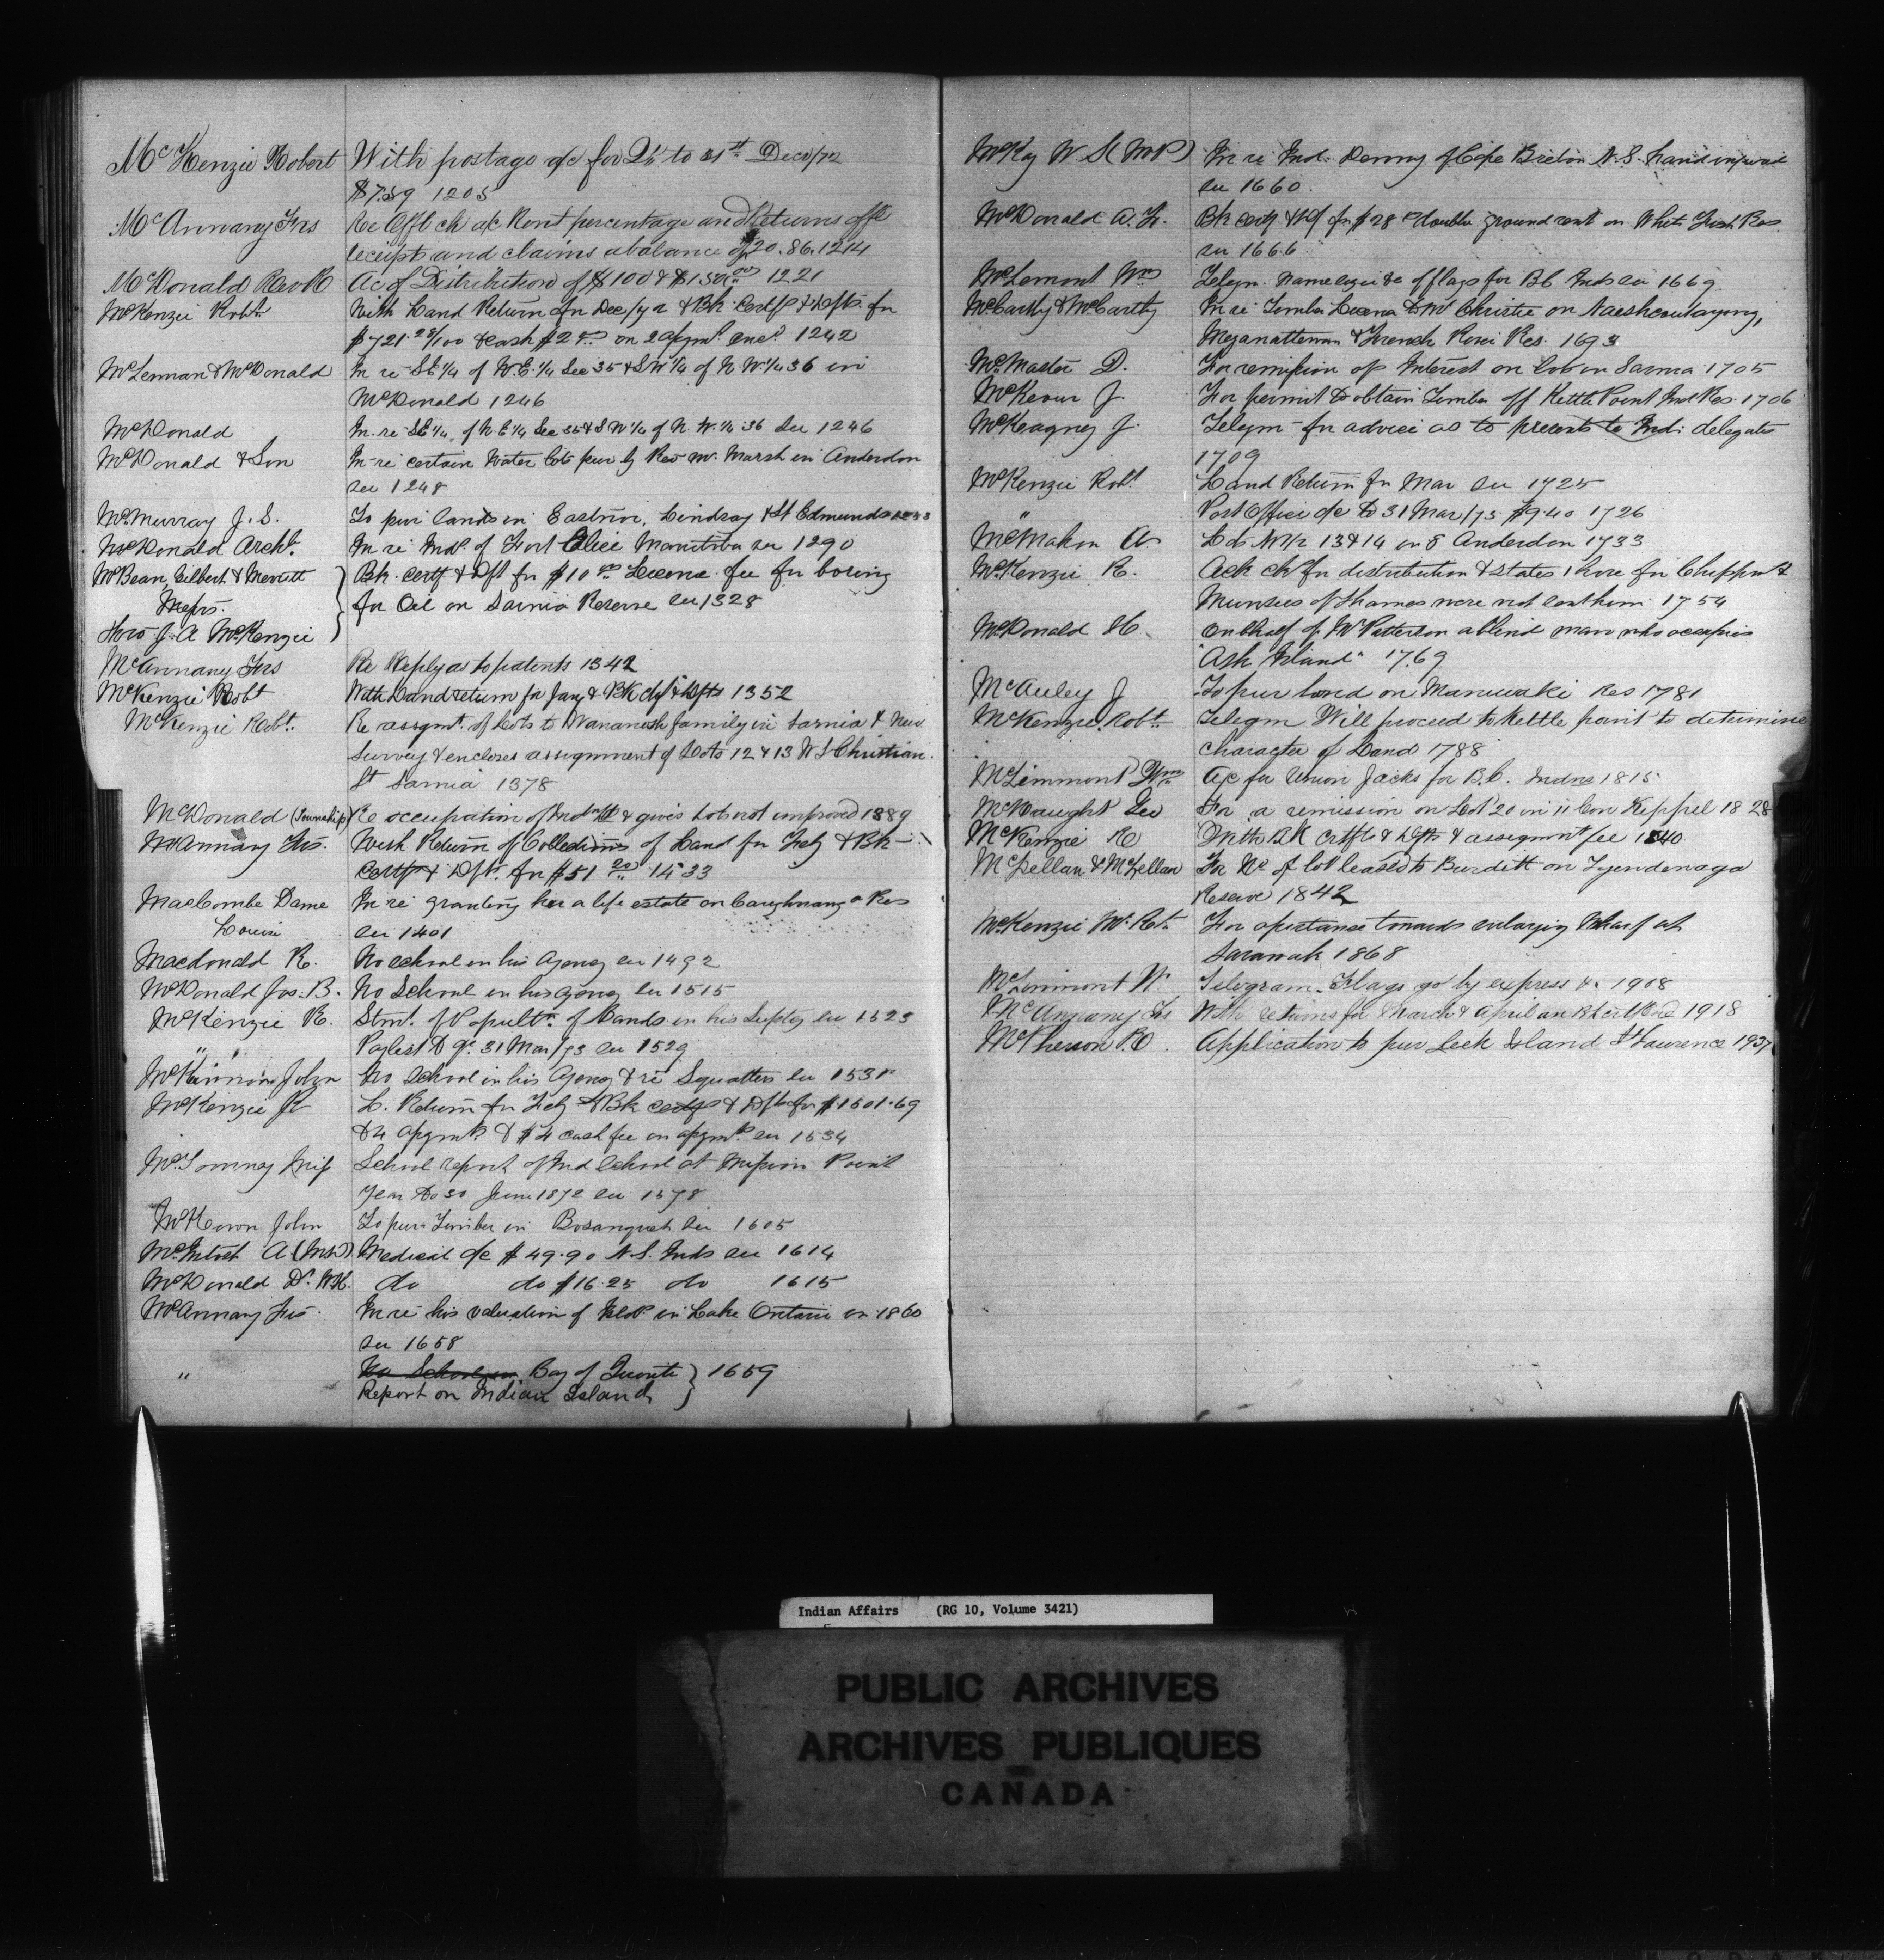 McKenzie Robert With postage a/c for Qr to 31st Dec/72
$7.59 1205
McAnnany Frs Re Offl ck a/c Rent percentage and Returns offl
receipts and claims a balance of $20.86. 1214
McDonald Rev R Ac of Distribution of $100 & $150 1221
McKenzie Robt With Land Return for Dec/72 & Bk Certf & Dfts for
$721.28/100 & cash $2 on 2 asgmts encd 1242
McLennan & McDonald In re SE 1/4 of N.E. 1/4 Sec 35 & SW 1/4 of N.W. 1/4 36 in
McDonald 1246
McDonald In re SE 1/4 of N.E 1/4 Sec 35 & SW 1/4 of N.W. 1/4 36 See 1246
McDonald & Son In re certain Water lots pur by Rev Mr. Marsh in Anderdon
see 1248
McMurray J. S. To pur lands in Eastnor, Lindsay & St Edmunds
McDonald Archd. In re Inds of Fort Ellice Manitoba see 1290
McBean, Gilbert & Merritt Bk. certf & Dft for $10 License fee for boring
Messrs. for Oil on Sarnia Reserve see 1328
thro J. A McKenzie
McAnnany Frs Re Reply as to patents 1342
McKenzie Robt With Land return for Jany & Bk ctf & Dfts 1352
McKenzie Robt. Re assgmt. of Lots to Wawanosh family in Sarnia & New
Survey & encloses assignment of Lots 12 & 13 W S Christian
St Sarnia 1378
McDonald (Township) Re occupation of & gives Lots not improved 1389
McAnnany Frs. With Return of Collections of Land for Feby & Bk
Certf & Dft. for $51 1533
MacCombe Dame In re granting her a life estate on Caughnawaga Res
Louise see 1401
Macdonald R. No school in his Agency see 1492
McDonald Jas. B. No School in his agency see 1515
McKenzie R. Stmt. of Popultn. of Bands in his Suptcy see 1523
" " Paylist to Qr. 31 Mar/73 see 1529
McKinnon John No School in his Agency & re Squatters see 1531
McKenzie R L. Return for Feby & Bk certf & Dft for $1501.69
& 4 asgmts & $4 cash fee on asgmts. see 1534
Miss School report of Ind School at Mission Point
Year to 30 June 1872 see 1578
McKeown John To pur Timber in Bosanquet see 1605
McIntosh A Medical a/c $49.90 N.S. Inds see 1614
McDonald Dr. W.H. do do $16.25 do 1615
McAnnany Frs. In re his valuation of Islds. in Lake Ontario in 1860
see 1658
" No School in Bay of Quinte 1659
Report on Indian Island
McKay W (M P) In re Ind. Denny of Cape Breton N.S. land
see 1660.
McDonald A. F. Bk certf & Df for $28 double ground rent on White Fish Res.
see 1666
McLemont Wm Telegm. name size &c of flags for BC Inds see 1669
McCarthy & McCarthy In re Timber License to Mr Christie on Naishcoutayong,
Meganattewan & French River Res. 1693
McMaster D. For remission of Interest on Lots in Sarnia 1705
McKeown J. For permit to obtain Timber off Kettle Point Ind Res. 1706
McKeagney J. Telegm for advice as to presents to Ind: delegates
1709
McKenzie Robt Land Return for Mar see 1725
" Post Office a/c to 31 Mar/73 $9.40 1726
McMahon A Lots 13 & 14 in 8 Anderdon 1733
McKenzie R. Ack ck for distribution & states those for Chippws &
Munsees of Thames were not sent him 1754
McDonald H. On behalf of W Patterson a blind man who occupies
"Ash Island" 1769
McAuley J To pur land on Maniwaki Res 1781
McKenzie Robt. Telegm Will proceed to Kettle point to determine
character of Land 1788
McLimmont Wm A/c for Union Jacks for B.C. Indns 1815
McNaught Geo For a remission on Lot 20 in 11 Con Keppel 1828
McKenzie R With BK Certfs & Dfts & assignmt fee 1840
McLellan & McLellan For No of lot leased to Burditt on Tyendenaga
Reserve 1842
McKenzie Mr. Rt. For assistance towards enlarging Wharf at
Sarawak 1868
McLimmont W. Telegram. Flags go by express &c 1908
McAnnany Frs With returns for March & April 1918
McPherson R. Application to pur Leek Island St Laurence 1937
Indian Affairs (RG 10, Volume 3421)
PUBLIC ARCHIVES
ARCHIVES PUBLIQUES
CANADA